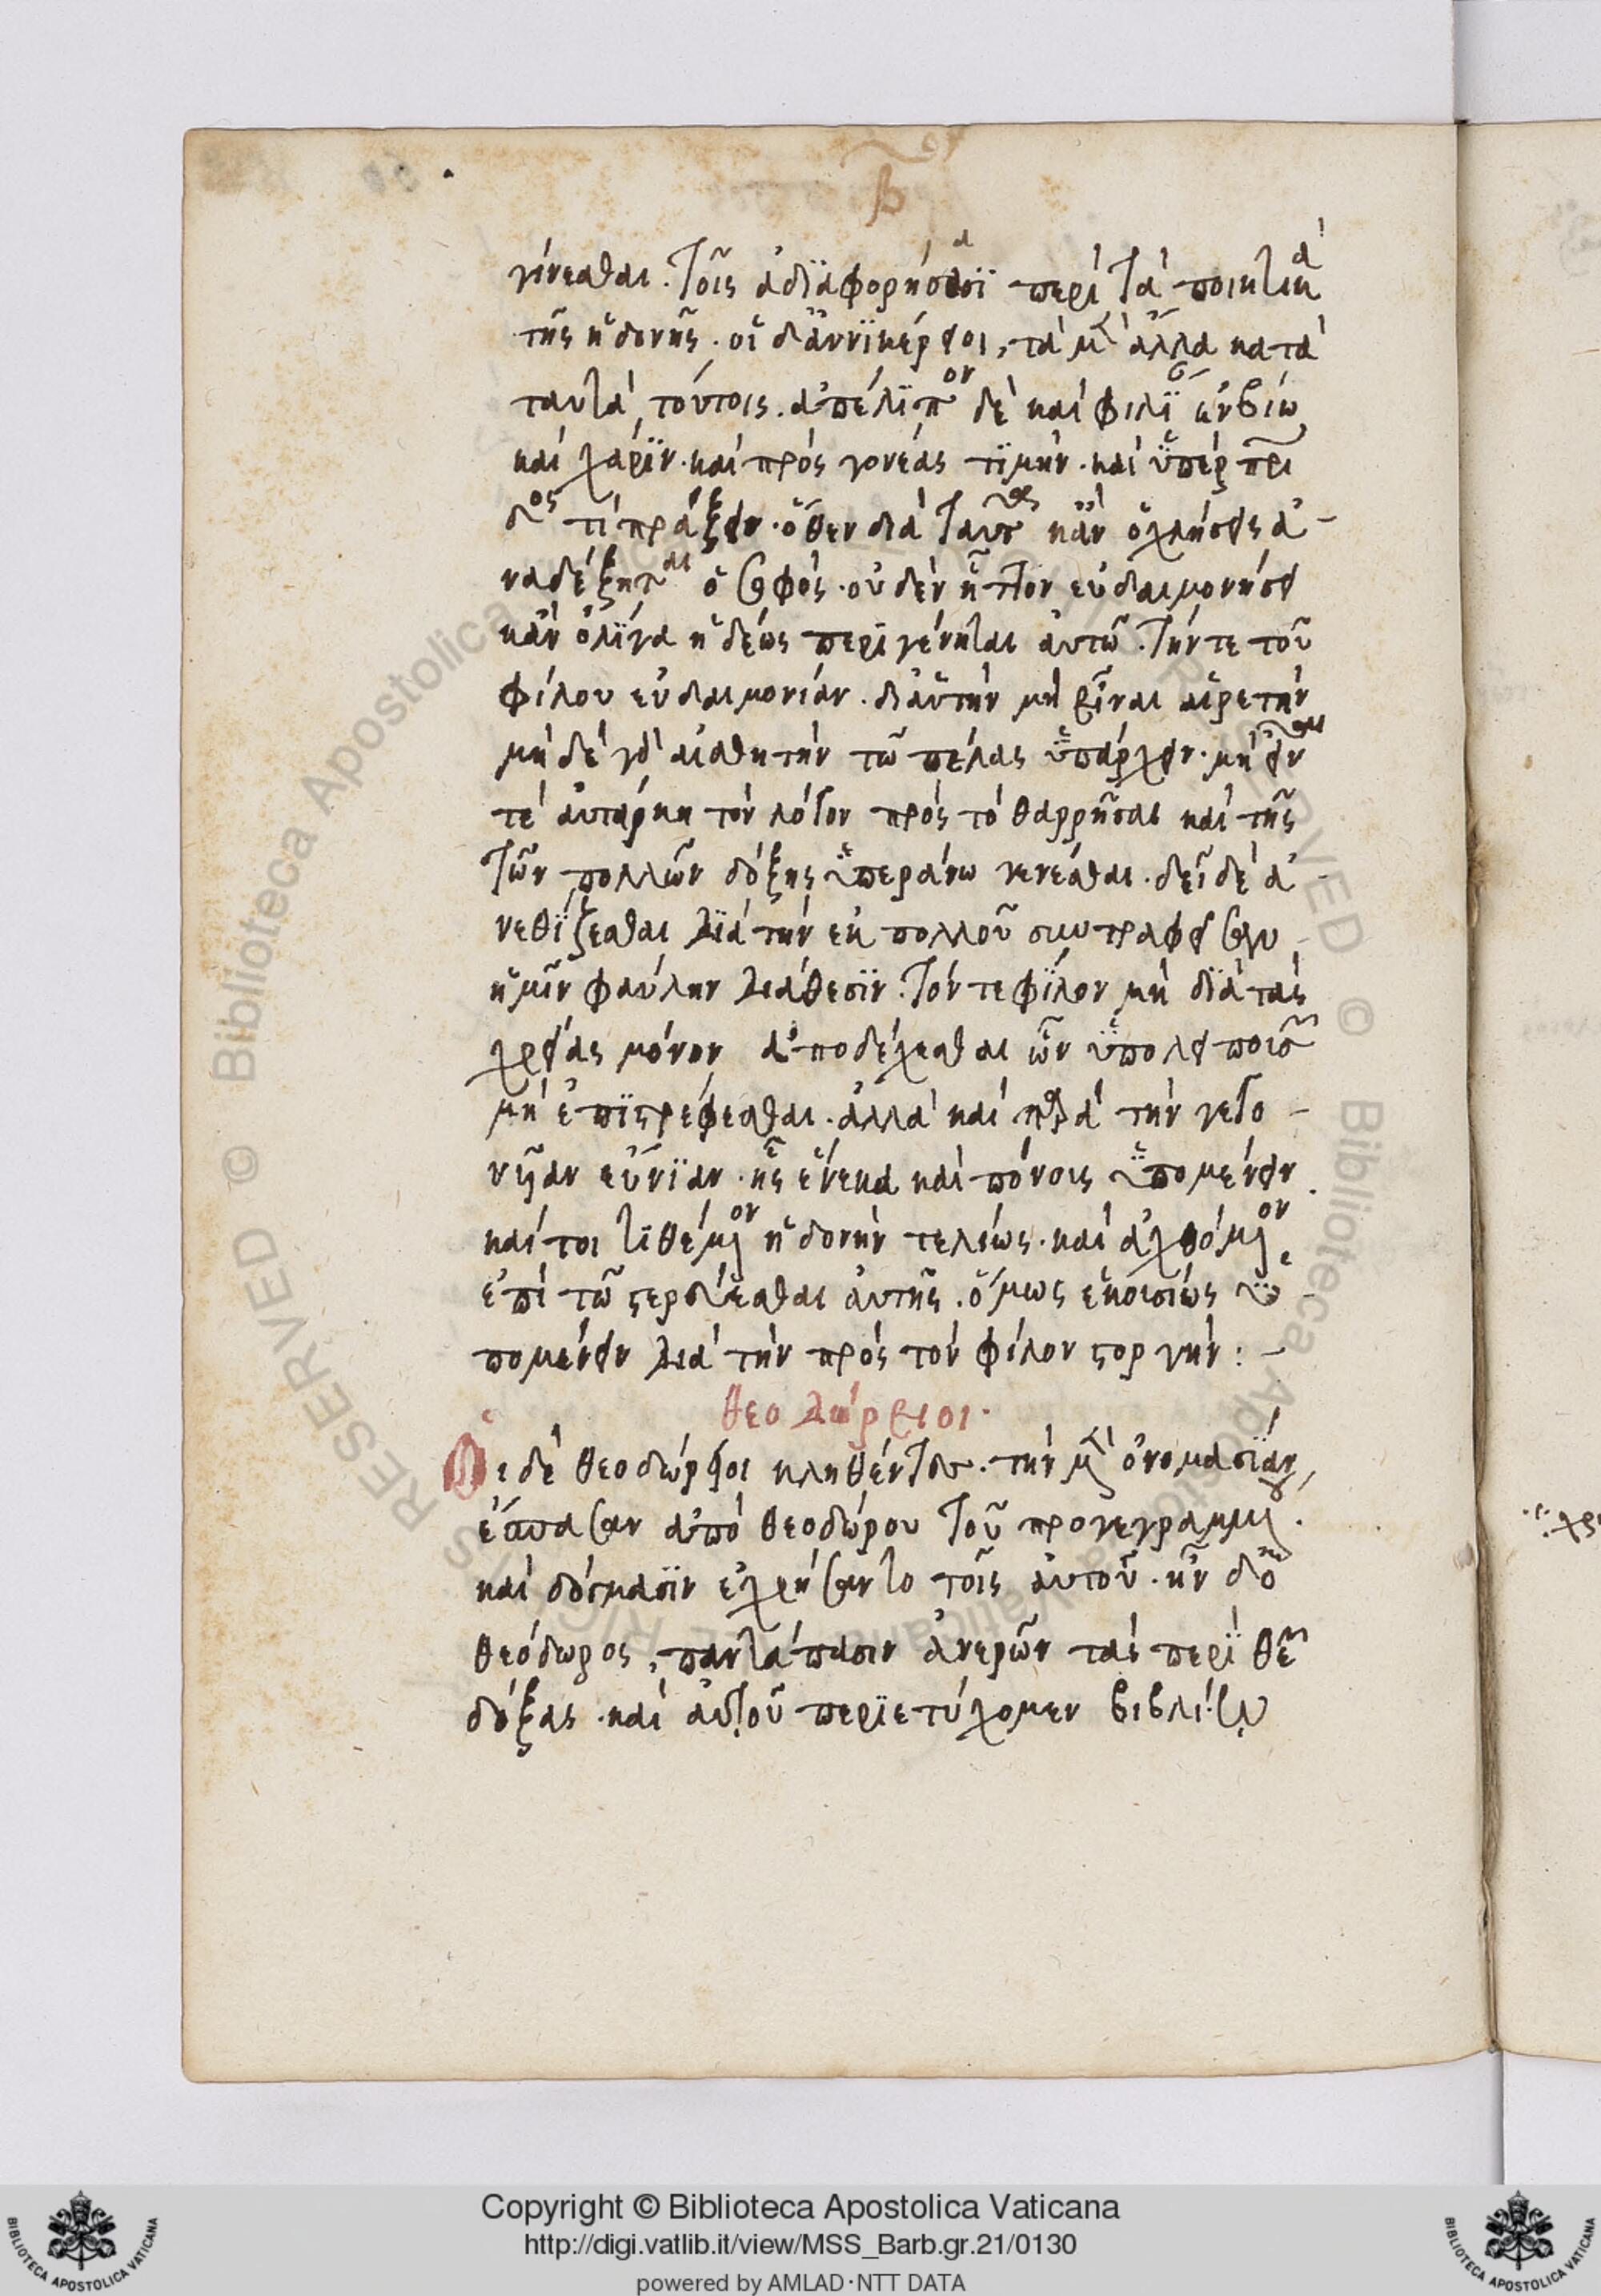 β
γίνεσθαι. τοῖς ἀδϊαφορήσασϊ περὶ τὰ ποιητικὰ
τῆς ἡδονῆς. οἱ δ' ἀννϊκέρειοι, τὰ μὲν ἄλλα κατὰ
ταυτὰ τούτοις. ἀπέλϊπον δὲ καὶ φιλΐαν ἐν βίω
καὶ χάρϊν. καὶ πρὸς γονέας τϊμὴν. καὶ ὑπὲρ πρι
δος τὶ πράξειν. ὅθεν διὰ ταῦτα κἂν ὀχλήσεις ἀ-
ναδέξηται ὁ σοφὸς. οὐδὲν ἧττον εὐδαιμονήσει
κἂν ὀλΐγα ἡδέως περϊγένηται ἀυτῶ. τήν τε τοῦ
φίλου εὐδαιμονίαν. δι' αὑτὴν μὴ εἶναι αἱρετὴν
μὴ δὲ γὰρ αἰσθητὴν τῶ πέλας ὑπάρχειν. μὴ εἶναι
τὲ ἀυτάρκη τὸν λόγον πρὸς τὸ θαρρῆσαι καὶ τῆς
τῶν πολλῶν δόξης ὑπεράνω γενέσθαι. δεῖ δὲ ἀ-
νεθΐζεσθαι διὰ τὴν ἐκ πολλοῦ συντραφεῖσαν
ἡμῖν φαύλην διάθεσϊν. τόν τε φΐλον μὴ δϊὰ τὰς
χρείας μόνον ἀποδέχεσθαι ὧν ὑπολειπουσῶν
μὴ ἐπϊστρέφεσθαι. ἀλλὰ καὶ παρὰ τὴν γεγο-
νυῖαν εὔνϊαν. ἧς ἕνεκα καὶ πόνοις ὑπομένειν.
καίτοι τϊθέμενον ἡδονὴν τελέως. καὶ ἀχθόμενον
ἐπὶ τῶ στέρεσθαι ἀυτῆς. ὅμως ἑκουσίως ὑ-
πομένειν διὰ τὴν πρὸς τὸν φίλον στοργὴν: -
θεοδώρειοι.
Οἱ δὲ θεοδώρειοι κληθέντες. τὴν μὲν ὀνομασϊάν
ἔσπασαν ἀπὸ θεοδώρου τοῦ προγεγραμμένου.
καὶ δόγμασϊν ἐχρήσαντο τοῖς ἀυτοῦ. ἦν δ' ὁ
θεόδωρος, παντάπασιν ἀνερῶν τὰς περὶ θεῶν
δόξας. καὶ ἀυτοῦ περϊετύχομεν βιβλίω